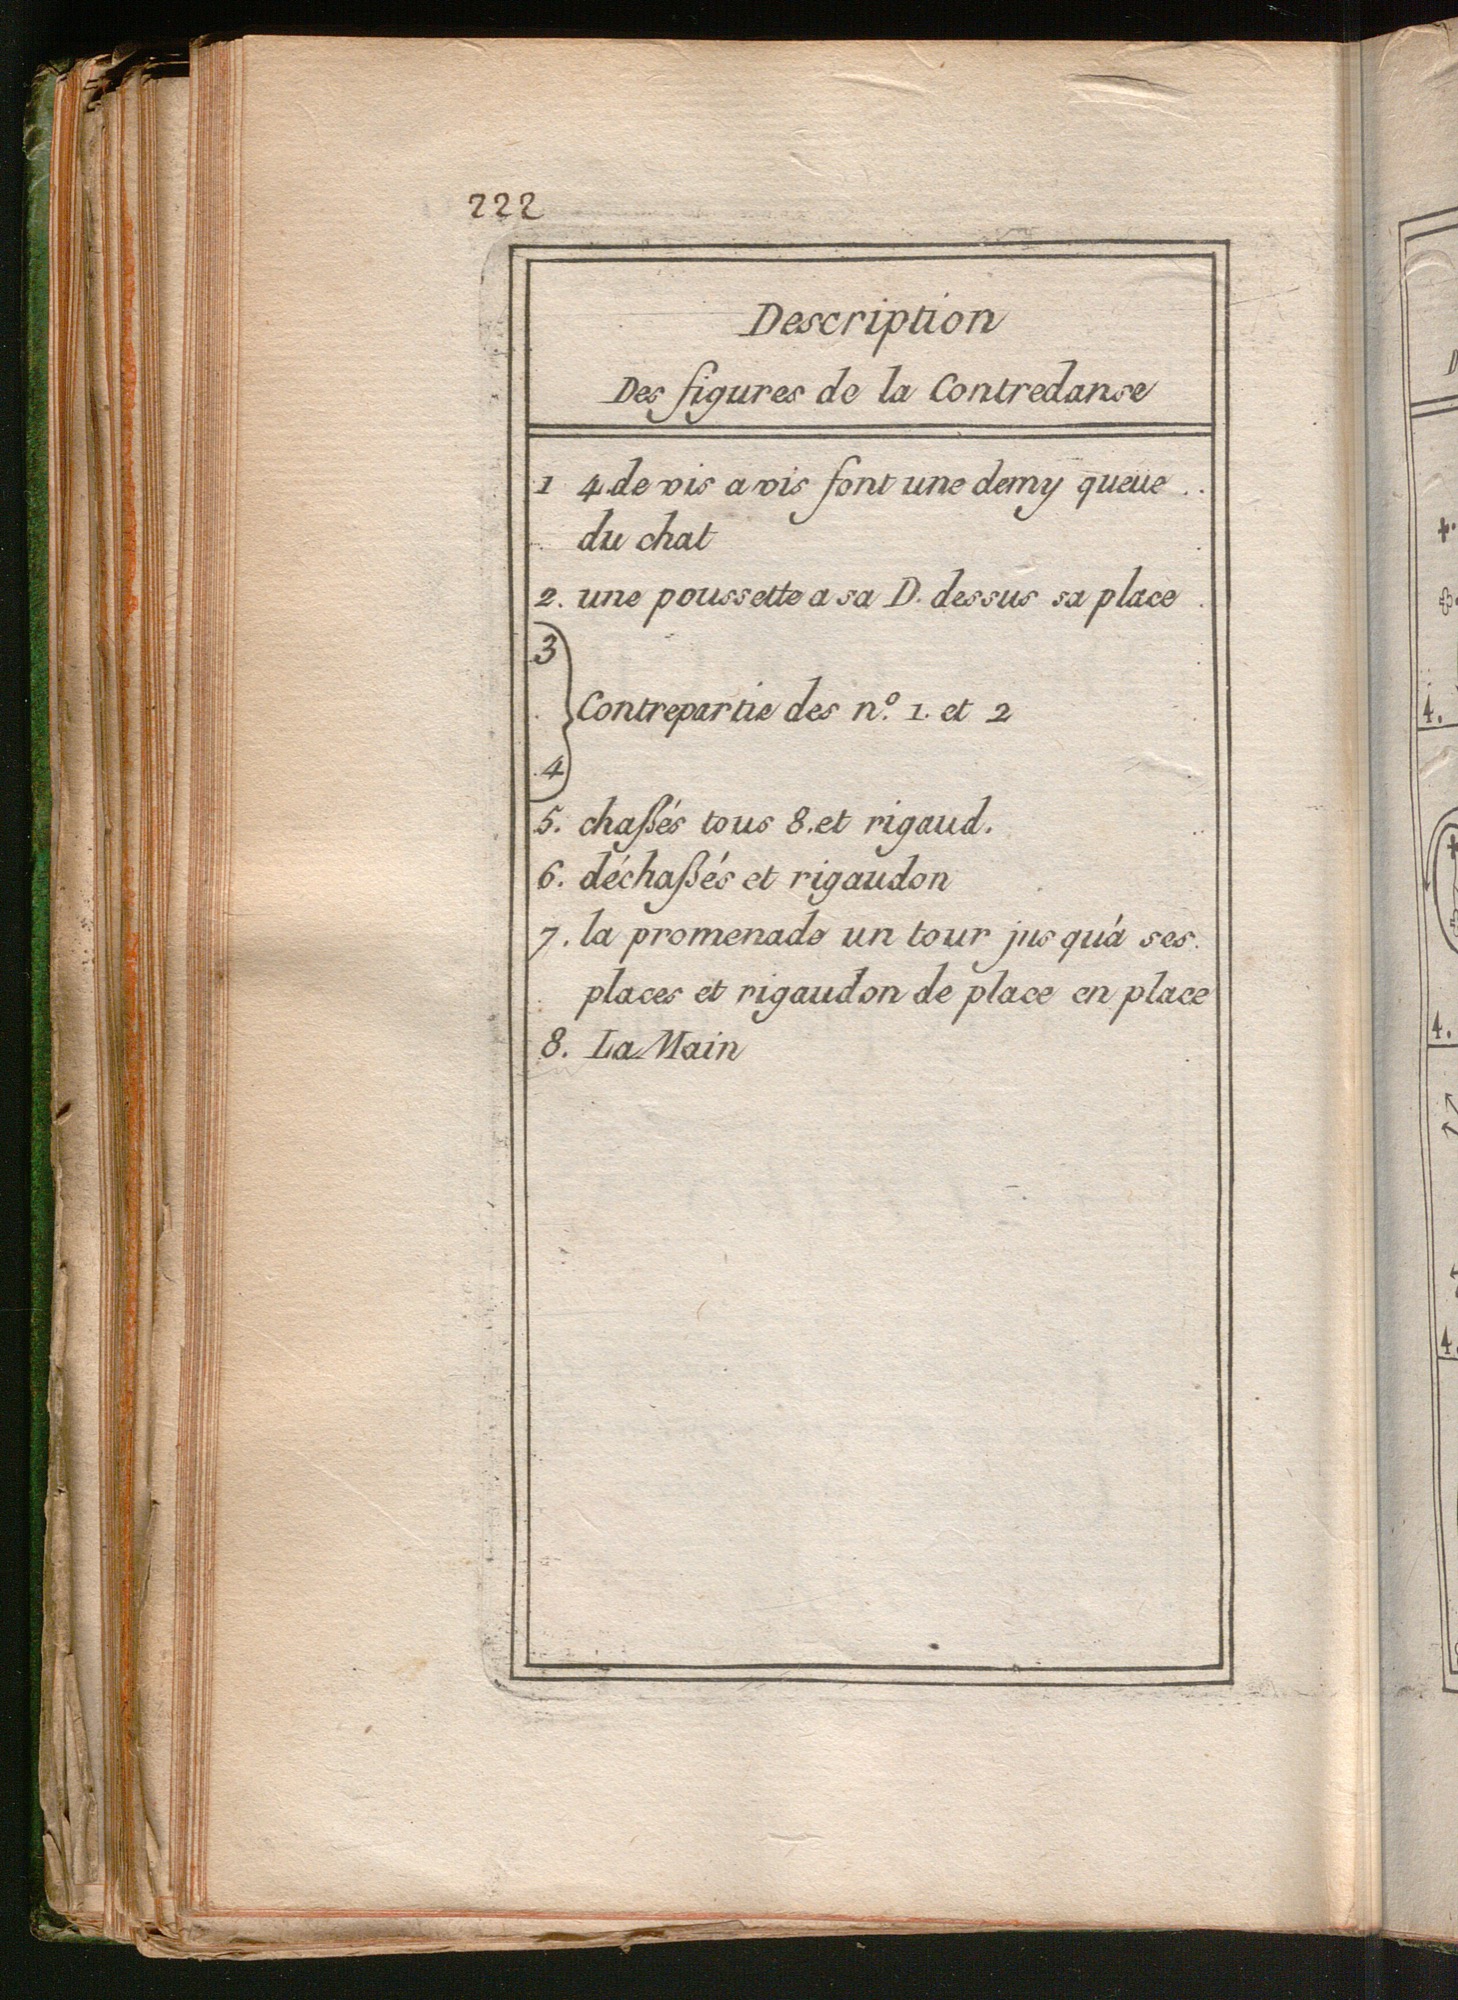 222
Description
Des figures de la Contredanse
1 4. de vis a vis font une demy queue
du chat
2. une poussette a sa D. dessus sa place
3
Contrepartie des n.º 1. et 2
4
5. chaßés tous 8. et rigaud.
6. déchaßés et rigaudon
7. la promenade un tour jusqu'á ses
places et rigaudon de place en place
8. La Main
4.
4.
4.